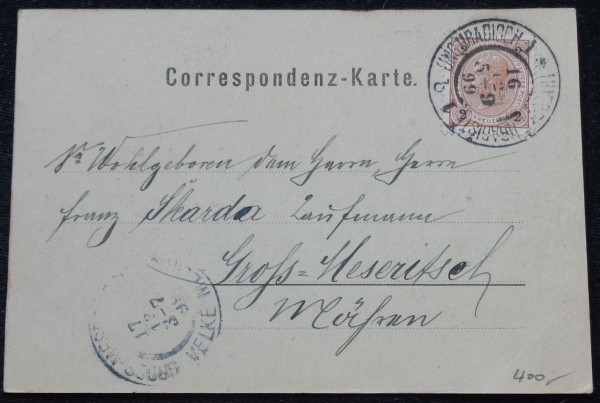 Correspondenz-Karte.
Sr Wohlgeboren dem Herrn, Herrn
Franz Škarda Kaufmann
Gross-Meseritsch
Mähren
UNG. HRADISCH
16
99
VELKÉ
17
99
400,-